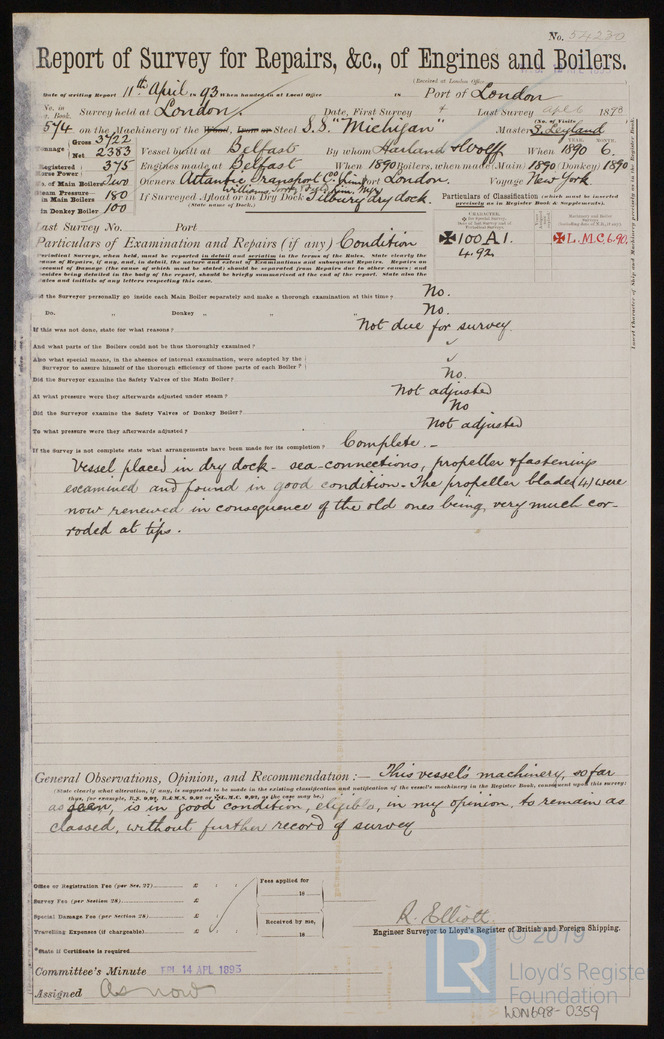 No. 54230
Report of Survey for Repairs, &c., of Engines and Boilers.
(Received at London Office
Date of writing Report 11th April 1893 When handed in at Local Office 18 Port of London
No. in Book. Survey held at London. Date, First Survey 4 Last Survey Apl 6 1893
(No. of Visits)
574 on the Machinery of the Wood, Iron or Steel S.S. "Michigan" Master S. Leyland
Tonnage Gross 3722 Net 2383 Vessel built at Belfast By whom Harland & Wolff When 1890 6.
YEAR. MONTH.
Registered Horse Power 375 Engines made at Belfast When 1890 Boilers, when made (Main) 1890 (Donkey) 1890
No. of Main Boilers Two Owners Atlantic Transport Co Lim Port London. Voyage New York
Steam Pressure in Main Boilers 180 If Surveyed Afloat or in Dry Dock Tilbury dry dock.
(State name of Dock.)
in Donkey Boiler 100
Particulars of Classification (which must be inserted precisely as in Register Book & Supplements).
✠100A1. 4.92
✠L.M.C. 6.90.
Last Survey No. Port
Particulars of Examination and Repairs (if any) Condition
Periodical Surveys, when held, must be reported in detail and seriatim in the terms of the Rules. State clearly the
cause of Repairs, if any, and, in detail, the nature and extent of Examinations and subsequent Repairs. Repairs on
account of Damage (the cause of which must be stated) should be separated from Repairs due to other causes; and
besides being detailed in the body of the report, should be briefly summarised at the end of the report. State also the
dates and initials of any letters respecting this case.
Did the Surveyor personally go inside each Main Boiler separately and make a thorough examination at this time? No.
Do. „ Donkey „ „ „ No.
If this was not done, state for what reasons? Not due for survey.
And what parts of the Boilers could not be thus thoroughly examined? ✓
Also what special means, in the absence of internal examination, were adopted by the
Surveyor to assure himself of the thorough efficiency of those parts of each Boiler? ✓
Did the Surveyor examine the Safety Valves of the Main Boiler? No.
At what pressure were they afterwards adjusted under steam? Not adjusted
Did the Surveyor examine the Safety Valves of Donkey Boiler? No
To what pressure were they afterwards adjusted? Not adjusted
If the Survey is not complete state what arrangements have been made for its completion? Complete. -
Vessel placed in dry dock - sea-connections, propeller & fastenings
examined and found in good condition. The propeller blades (4) were
now renewed in consequence of the old ones being very much cor-
roded at tips.
General Observations, Opinion, and Recommendation :— This vessel's machinery, so far
(State clearly what alteration, if any, is suggested to be made in the existing classification and notification of the vessel's machinery in the Register Book, consequent upon this survey;
as seen, is in good condition, eligible, in my opinion, to remain as
classed, without further record of survey
Office or Registration Fee (per Sec. 27) £
Survey Fee (per Section 28) £
Special Damage Fee (per Section 28) £
Travelling Expenses (if chargeable) £
Fees applied for 18
Received by me, 18
*State if Certificate is required
R. Elliott.
Engineer Surveyor to Lloyd's Register of British and Foreign Shipping.
Committee's Minute FRI 14 APL 1893
Assigned As now
© 2019
LR
Lloyd's Register
Foundation
LON698-0359